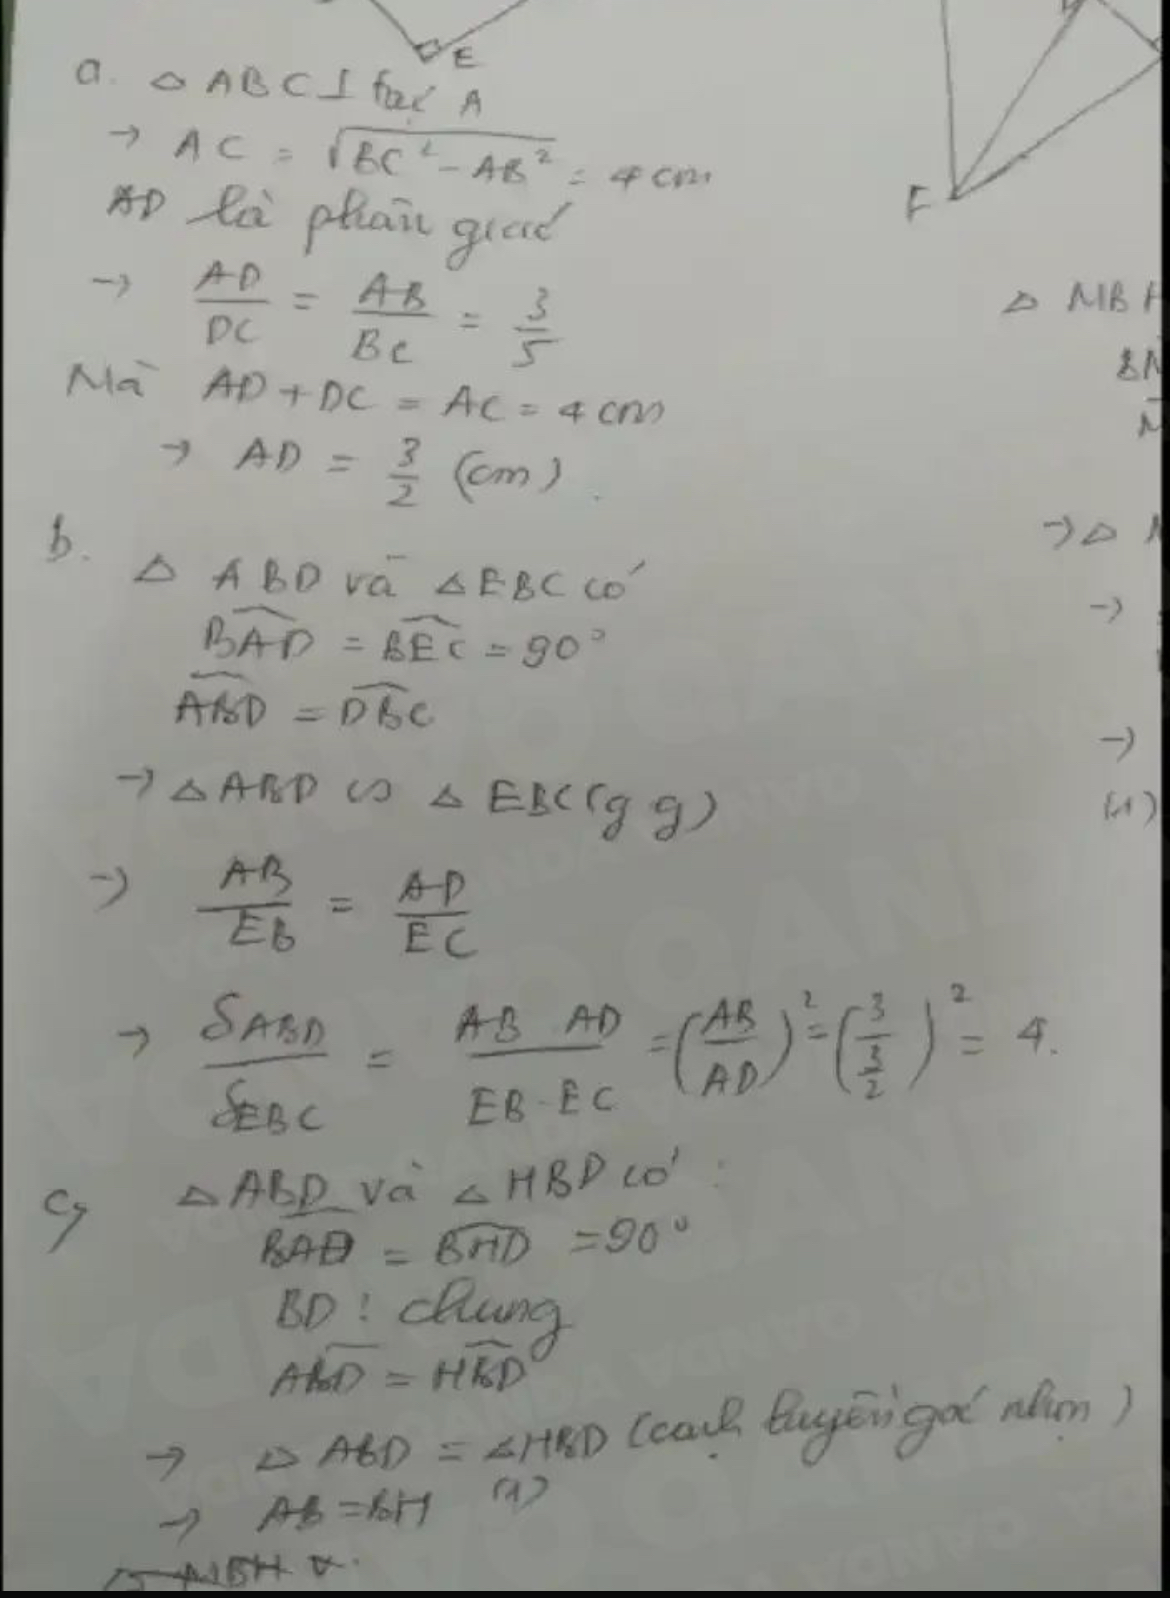 E
a. △ ABC ⊥ tại A
→ AC = √BC² - AB² = 4 cm
F
AD là phân giác
→ AD/DC = AB/BC = 3/5
△ MBH
Mà AD + DC = AC = 4 cm
→ AD = 3/2 (cm)
→ △
b. △ ABD và △ EBC có
→
BAD = BEC = 90°
ABD = DBC
→
→ △ ABD ∽ △ EBC (g g)
(1)
→ AB/EB = AD/EC
→ SABD/SEBC = AB AD/EB . EC = (AB/AD)² = (3/(3/2))² = 4.
c, △ ABD và △ HBD có :
BAD = BHD = 90°
BD : chung
ABD = HBD
→ △ ABD = △ HBD (cạnh huyền góc nhọn)
→ AB = BH (1)